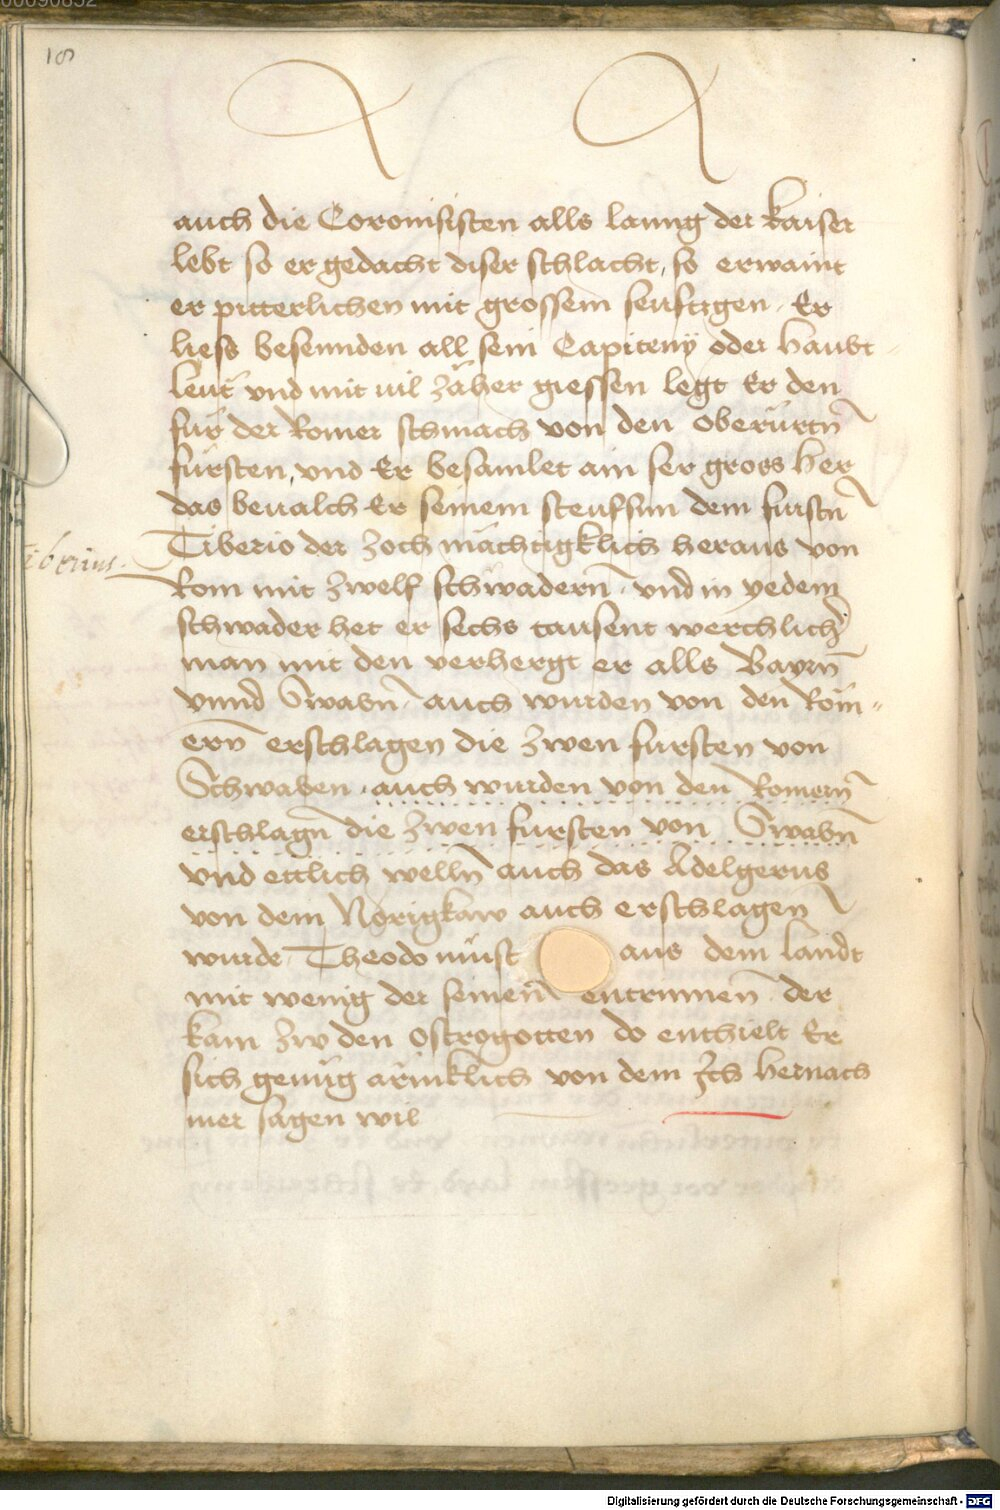 18
auch die Coronisisten alls lanng der kaiser
lebt so er gedacht diser schlacht, so erwaint
er pitterlichen mit grossem seuftzgen. Er
liess besennden all sein Capiteny oder haubt
leut vnd mit vil zäher giessen legt Er den
für der Romer schmach von den oberürtn̄
fürsten, vnd Er besamlet ain ser gross her
das beualch Er seinem steufsun dem furstn̄
Tiberio der zoch mächtigklich heraus von
Tiberius.
Rom mit zwelf schwadern̄. vnd in yedem
schwader het er sechs tausent werchlich̄
man mit den verhergt er alls Bayrn̄
vnnd Swabn̄. auch wurden von den Röm-
ern̄ erschlagen die zwen fursten von
Schwaben. auch wurden von den Romern̄
erschlagn̄ die zwen fursten von Swabn̄
vnd ettlich welln̄ auch das Adelgerus
von dem Norigkaw auch erschlagen
wurde Theodo müst aus dem landt
mit wenig der seinen̄ entrinnen der
kam zw den ostrogotten do enthielt Er
sich genüg ärmklich von dem Ich hernach
mer sagen wil
Digitalisierung gefördert durch die Deutsche Forschungsgemeinschaft - DFG